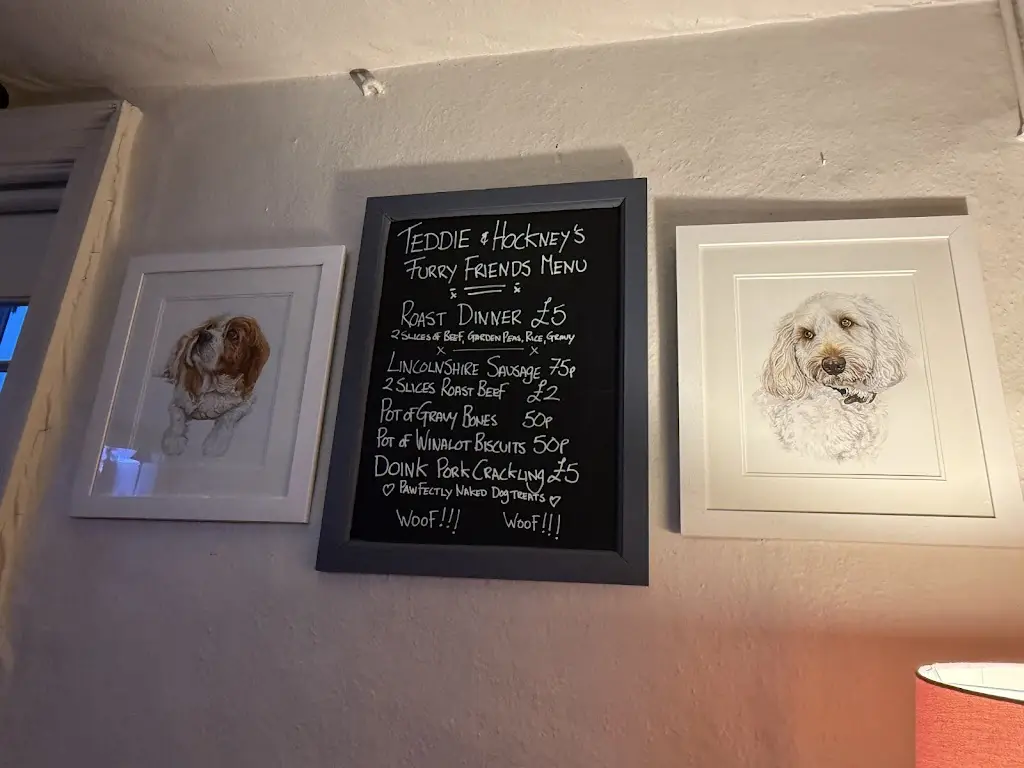 TEDDIE & HOCKNEY'S
FURRY FRIENDS MENU
ROAST DINNER £5
2 SLICES OF BEEF, GARDEN PEAS, RICE, GRAVY
LINCOLNSHIRE SAUSAGE 75p
2 SLICES ROAST BEEF £2
POT OF GRAVY BONES 50p
POT OF WINALOT BISCUITS 50p
DOINK PORK CRACKLING £5
♡ PAWFECTLY NAKED DOG TREATS ♡
WOOF!!! WOOF!!!